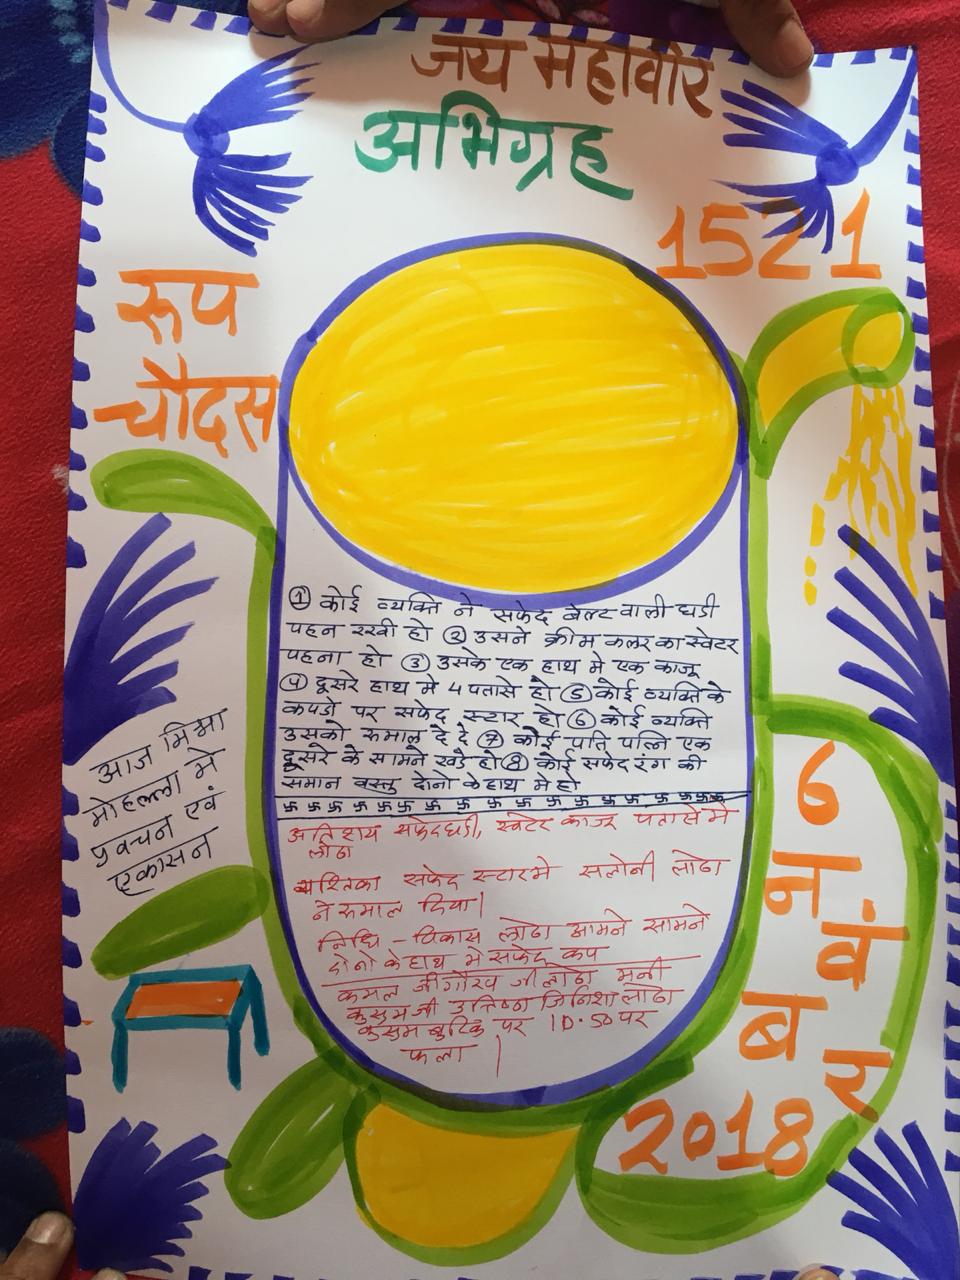 जय महावीर
अभिग्रह
1521
रूप
चौदस
① कोई व्यक्ति ने सफेद बेल्ट वाली घडी
पहन रखी हो ② उसने क्रीम कलर का स्वेटर
पहना हो ③ उसके एक हाथ मे एक काजू
④ दूसरे हाथ मे 4 पतासे हो ⑤ कोई व्यक्ति के
कपडो पर सफेद स्टार हो ⑥ कोई व्यक्ति
उसको रुमाल दे दे ⑦ कोई पति पत्नि एक
दूसरे के सामने खडे हो ⑧ कोई सफेद रंग की
समान वस्तु दोनो के हाथ मे हो
卐 卐 卐 卐 卐 卐 卐 卐 卐 卐 卐 卐 卐 卐 卐 卐 卐 卐
अतिशय सफेद घडी, स्वेटर काजू पतासे मे
लोढा
सफेद स्टार मे सलोनी लोढा
ने रुमाल दिया|
निधि - विकास लोढा आमने सामने
दोनो के हाथ मे सफेद कप
कमल जी गौरव जी लोढा
कुसुम जी लोढा
कुसुम बुटिक पर 10.50 पर
फला |
आज
मोहल्ला मे
प्रवचन एवं
एकासन
6
नवंबर
2018